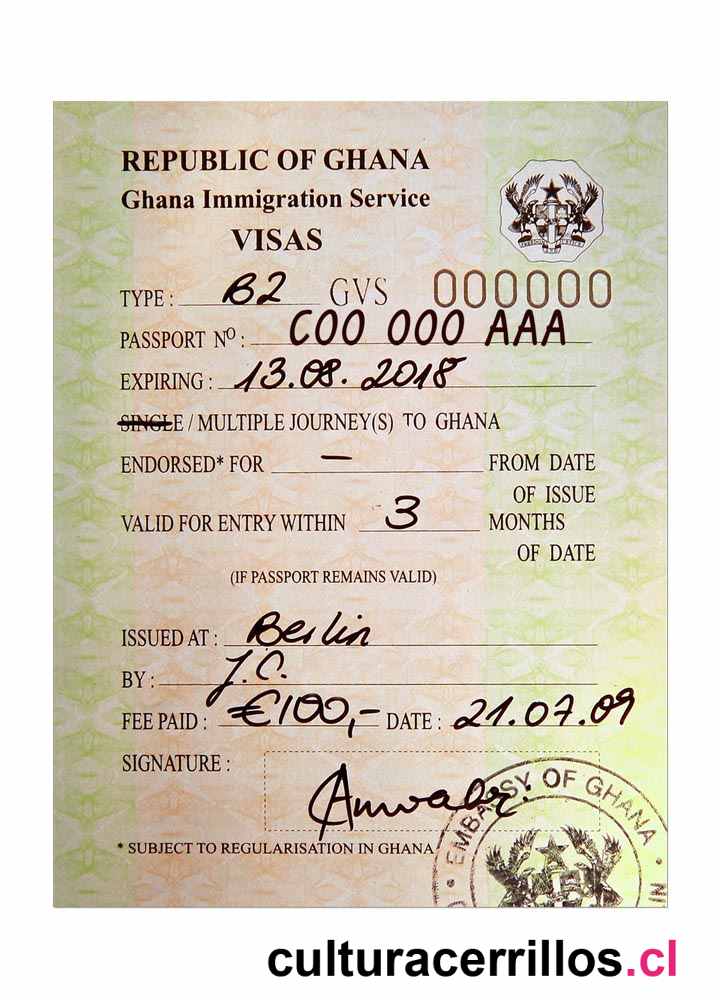 REPUBLIC OF GHANA
Ghana Immigration Service
VISAS
TYPE : B2 GVS 000000
PASSPORT Nº : C00 000 AAA
EXPIRING : 13.08.2018
SINGLE / MULTIPLE JOURNEY(S) TO GHANA
ENDORSED* FOR — FROM DATE
OF ISSUE
VALID FOR ENTRY WITHIN 3 MONTHS
OF DATE
(IF PASSPORT REMAINS VALID)
ISSUED AT : Berlin
BY : J.C.
FEE PAID : €100,- DATE : 21.07.09
SIGNATURE :
* SUBJECT TO REGULARISATION IN GHANA
EMBASSY OF GHANA
culturacerrillos.cl